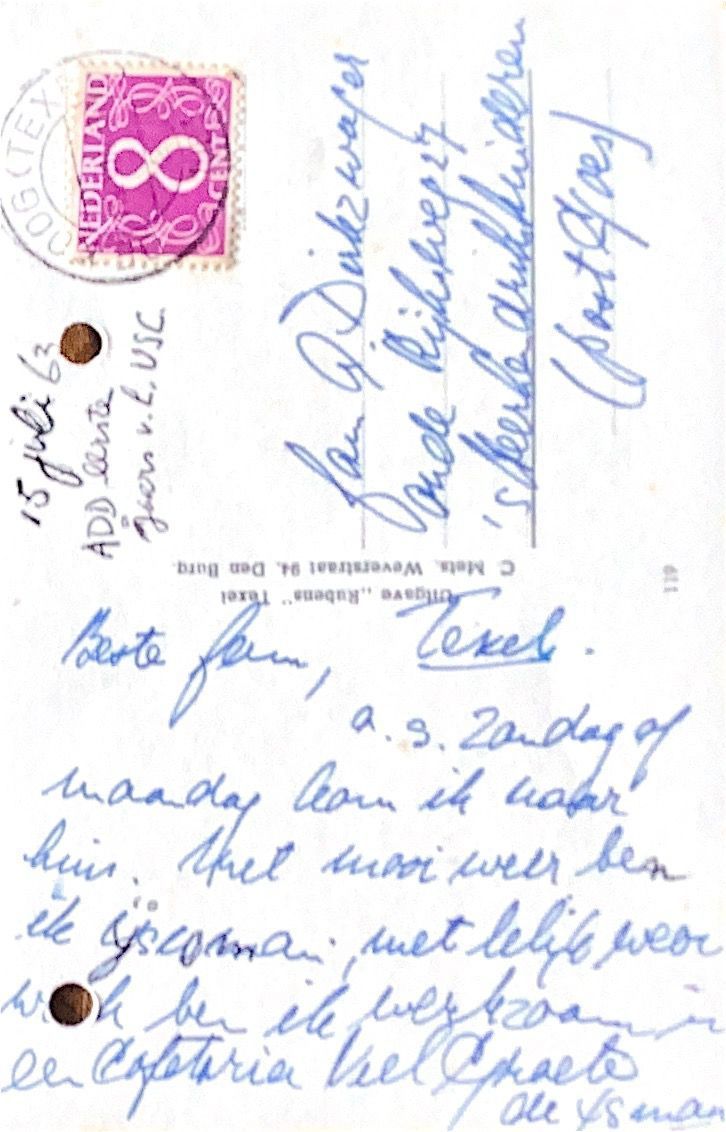 Beste Jan, Texel.
a.s. Zondag of
maandag kom ik naar
huis. Met mooi weer ben
ik ijscoman, met lelijk weer
ben ik werkzaam in
een Cafetaria Veel Groete
de ijsman
Uitgave „Rubens” Texel
C. Mets, Weverstraat 94, Den Burg.
611
Jan Dirkzwager
oude Rijksweg 27
's Heerenhendrikskinderen
(post Goes)
NEDERLAND
8
CENT
OOG (TEX
15 juli 63
ADD eerste
v.h. USC.